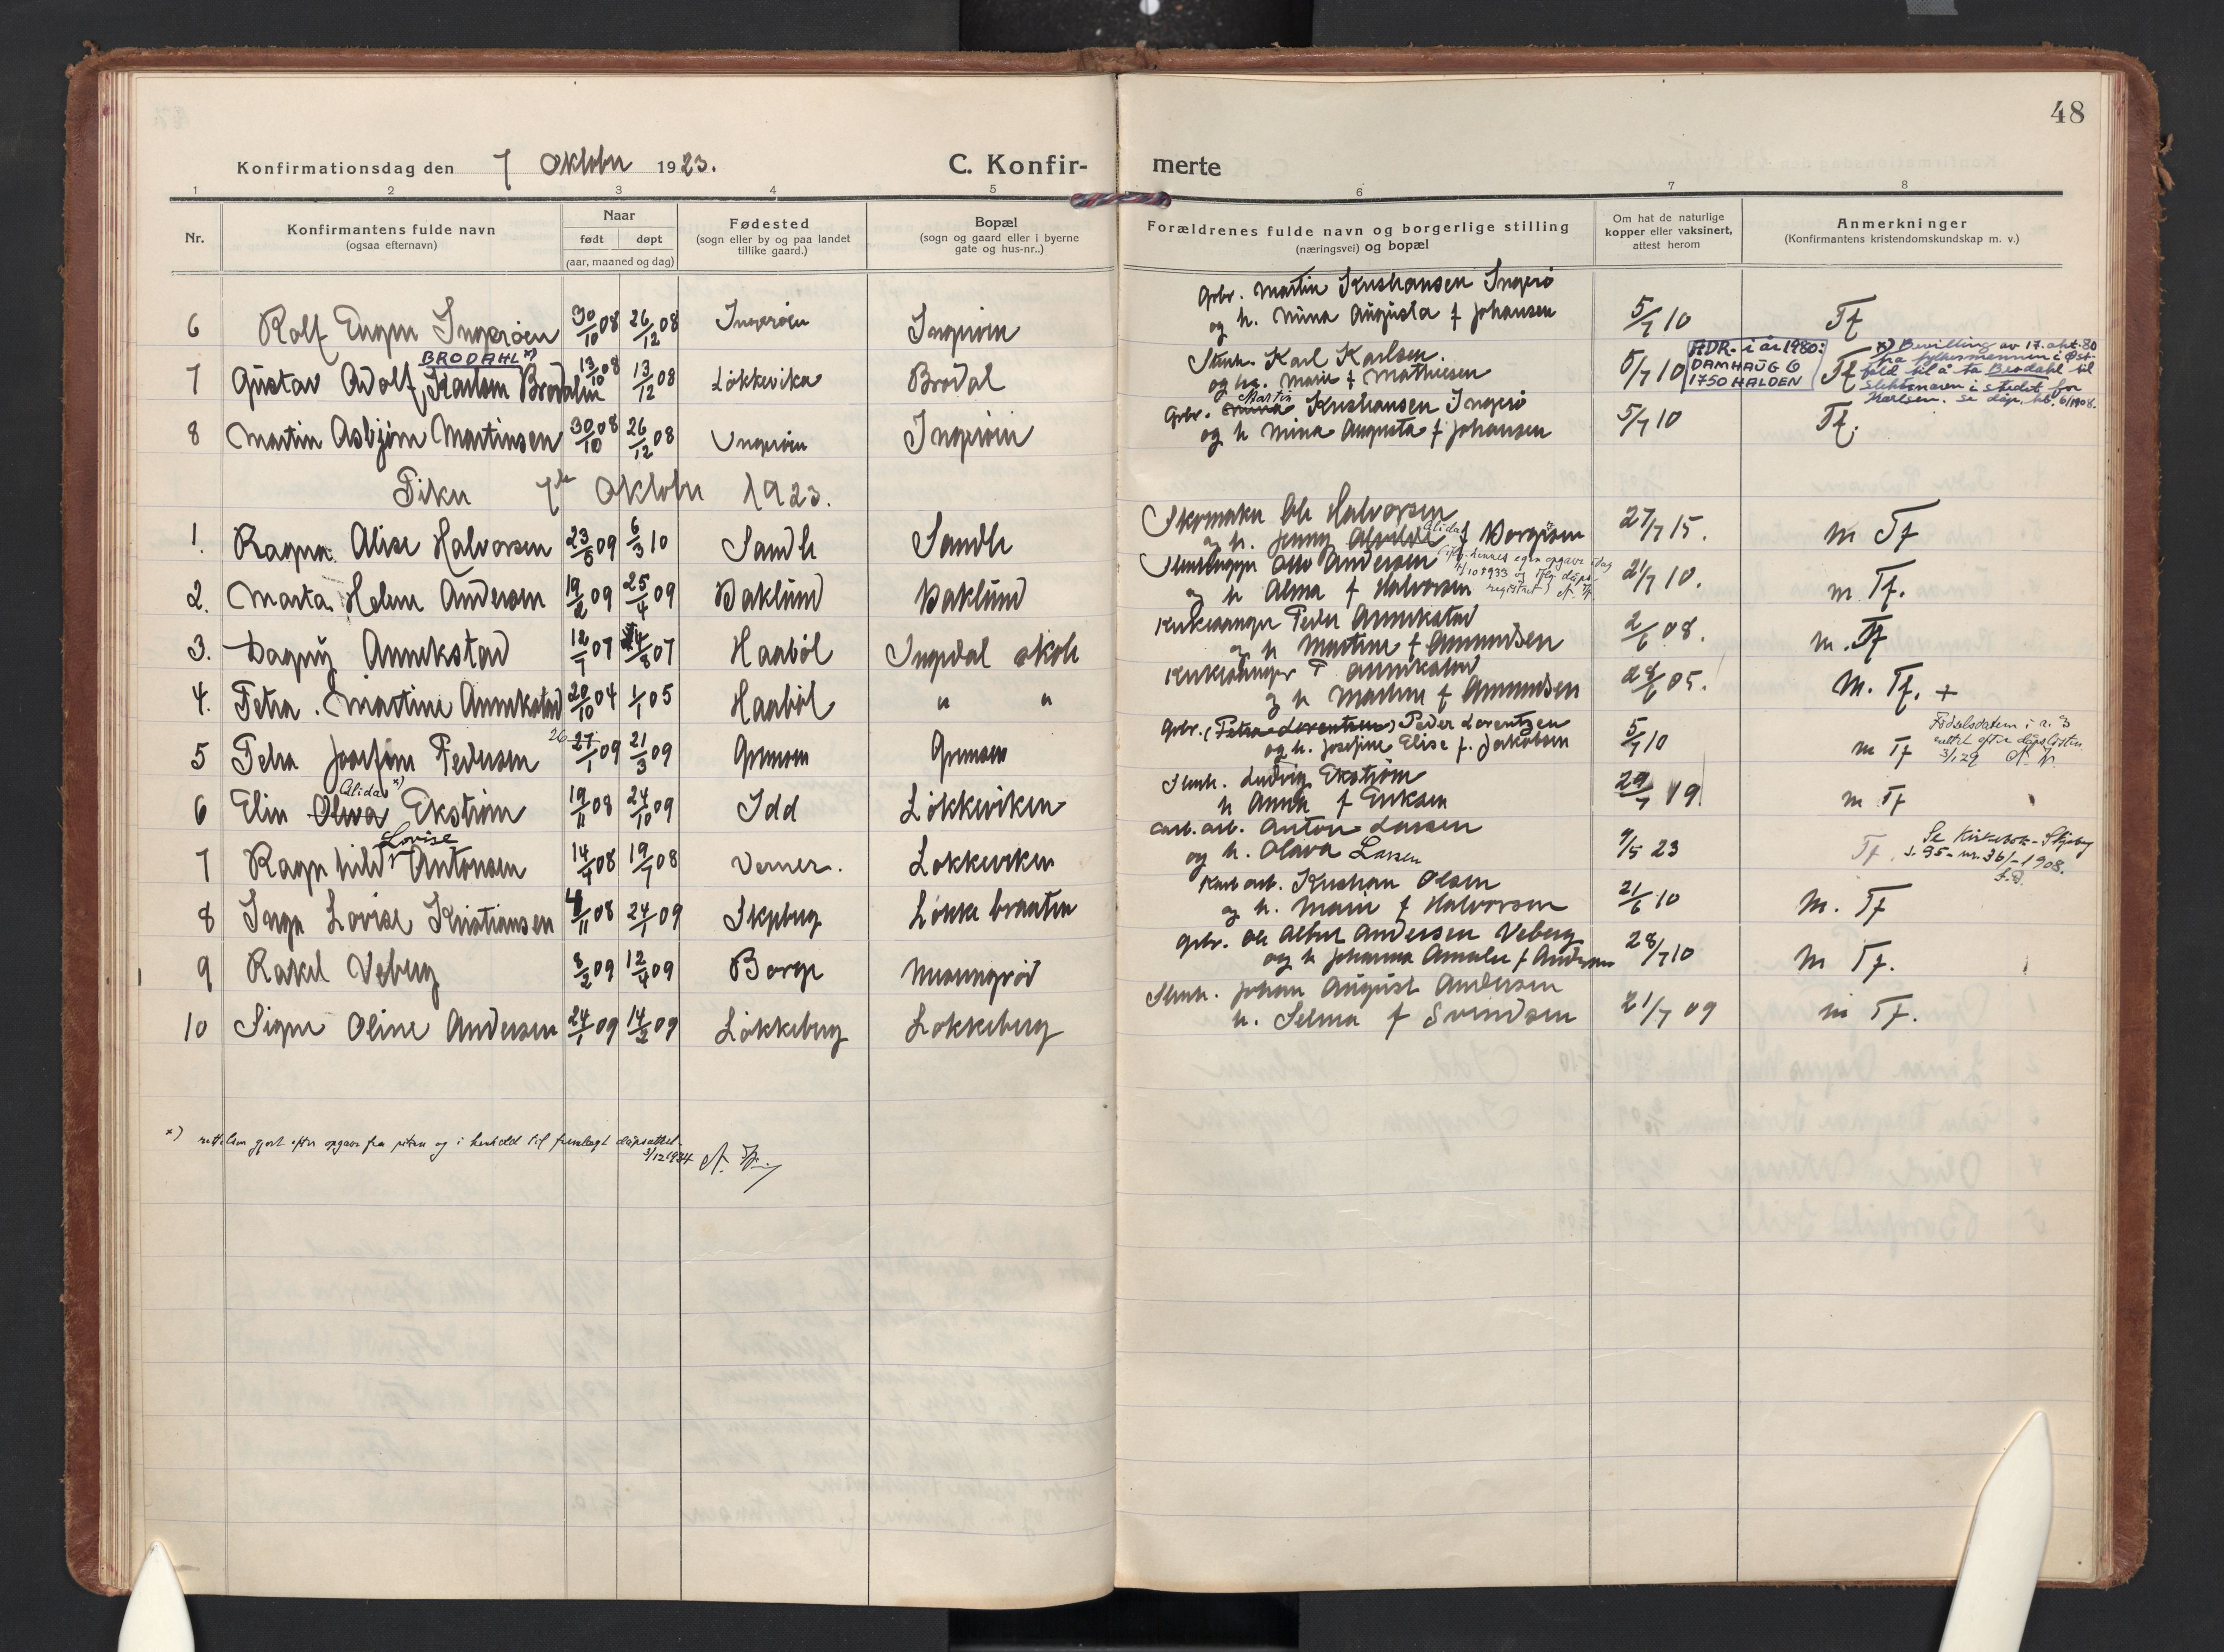 48
Konfirmationsdag den 7 Oktober 1923. C. Konfir-merte
1 2 3 4 5 6 7 8
Nr. Konfirmantens fulde navn (ogsaa efternavn) Naar født døpt (aar, maaned og dag) Fødested (sogn eller by og paa landet tillike gaard.) Bopæl (sogn og gaard eller i byerne gate og hus-nr..) Forældrenes fulde navn og borgerlige stilling (næringsvei) og bopæl Om hat de naturlige kopper eller vaksinert, attest herom Anmerkninger (Konfirmantens kristendomskundskap m. v.)
Gbr. Martin Kristiansen Ingerø
6 Rolf Eugen Ingerøen 30/10 08 26/12 08 Ingerøen Ingerøen og h. Mina Augusta f Johansen 5/7 10 Tf
BRODAHL x)
7 Gustav Adolf Karlsen Brodalen 13/10 08 13/12 08 Løkkevika Brodal Stenh. Karl Karlsen.
og h. Marie f Mathiesen 5/7 10 Tf
ADR. i år 1980:
DAMHAUG 6
1750 HALDEN
x) Bevilling av 17. okt. 80
fra fylkesmannen i Øst-
fold til å ta Brodahl til
slektsnavn i stedet for
Karlsen. se døp. nr. 6/1908.
8 Martin Asbjørn Martinsen 30/10 08 26/12 08 Ingerøen Ingerøen Gbr. Mina Martin Kristiansen Ingerø
og h Mina Augusta f Johansen 5/7 10 Tf.
Piker 7de Oktober 1923.
1. Ragna Alise Halvorsen 23/6 09 6/3 10 Sandli Sandli Skomaker Ole Halvorsen
og h. Jenny Alida f Borgersen 27/7 15. m Tf
(iflg. hennes egen opgave idag
/10 1933 og iflg. dåps-
registret) A. H.
2. Marta Helene Andersen 19/2 09 25/4 09 Baklund Baklund Stenhugger Otto Andersen
og h Alma f Halvorsen 21/7 10. m. Tf.
3. Dagny Annekstad 12/7 07 4/8 07 Haabøl Ingedal skole Kirkesanger Peder Annekstad
og h Martine f Amundsen 2/6 08. m. Tf
4. Petra Martine Annekstad 20/10 04 1/1 05 Haabøl " " Kirkesanger P Annekstad
og h Martine f Amundsen 28/6 05. M. Tf. +
5 Petra Josefine Pedersen 26 27/1 09 21/3 09 Gremsen Gremsen Gbr. (Petra Lorentzen) Peder Lorentzen
og h. Josefine Elise f. Jakobsen 5/7 10 m Tf
Fødselsdatoen i r. 3
rettet efter dåpslisten
3/1 29 A. H.
6 Elin Oliva Alida x) Ekstrøm 19/11 08 24/10 09 Idd Løkkeviken Stenh. Ludvig Ekstrøm
h Anna f Eriksen 29/7 19 m Tf
7 Ragnhild Lovise Antonsen 14/4 08 19/7 08 Verner. Løkkeviken arb. Anton Larsen
og h. Olava Larsen 9/5 23 Tf.
Se Kirkebok - Skjeberg
s. 95 - nr. 36/-1908.
8 Inga Lovise Kristiansen 4/11 08 24/1 09 Skjeberg Løkke braaten arb. Kristian Olsen
og h. Marie f Halvorsen 21/6 10 M. Tf
9 Rakel Veberg 3/2 09 12/4 09 Borge Gbr. Ole Albert Andersen Veberg
og h Johanna Amalie f Andersen 28/7 10 M Tf.
10 Signe Oline Andersen 24/1 09 14/2 09 Løkkeberg Løkkeberg Stenh. Johan August Andersen
h. Selma f Svendsen 21/7 09 m Tf.
x) rettelsen gjort efter opgave fra piken og i henhold til fremlagt dåpsattest.
3/12 1934 A. H.